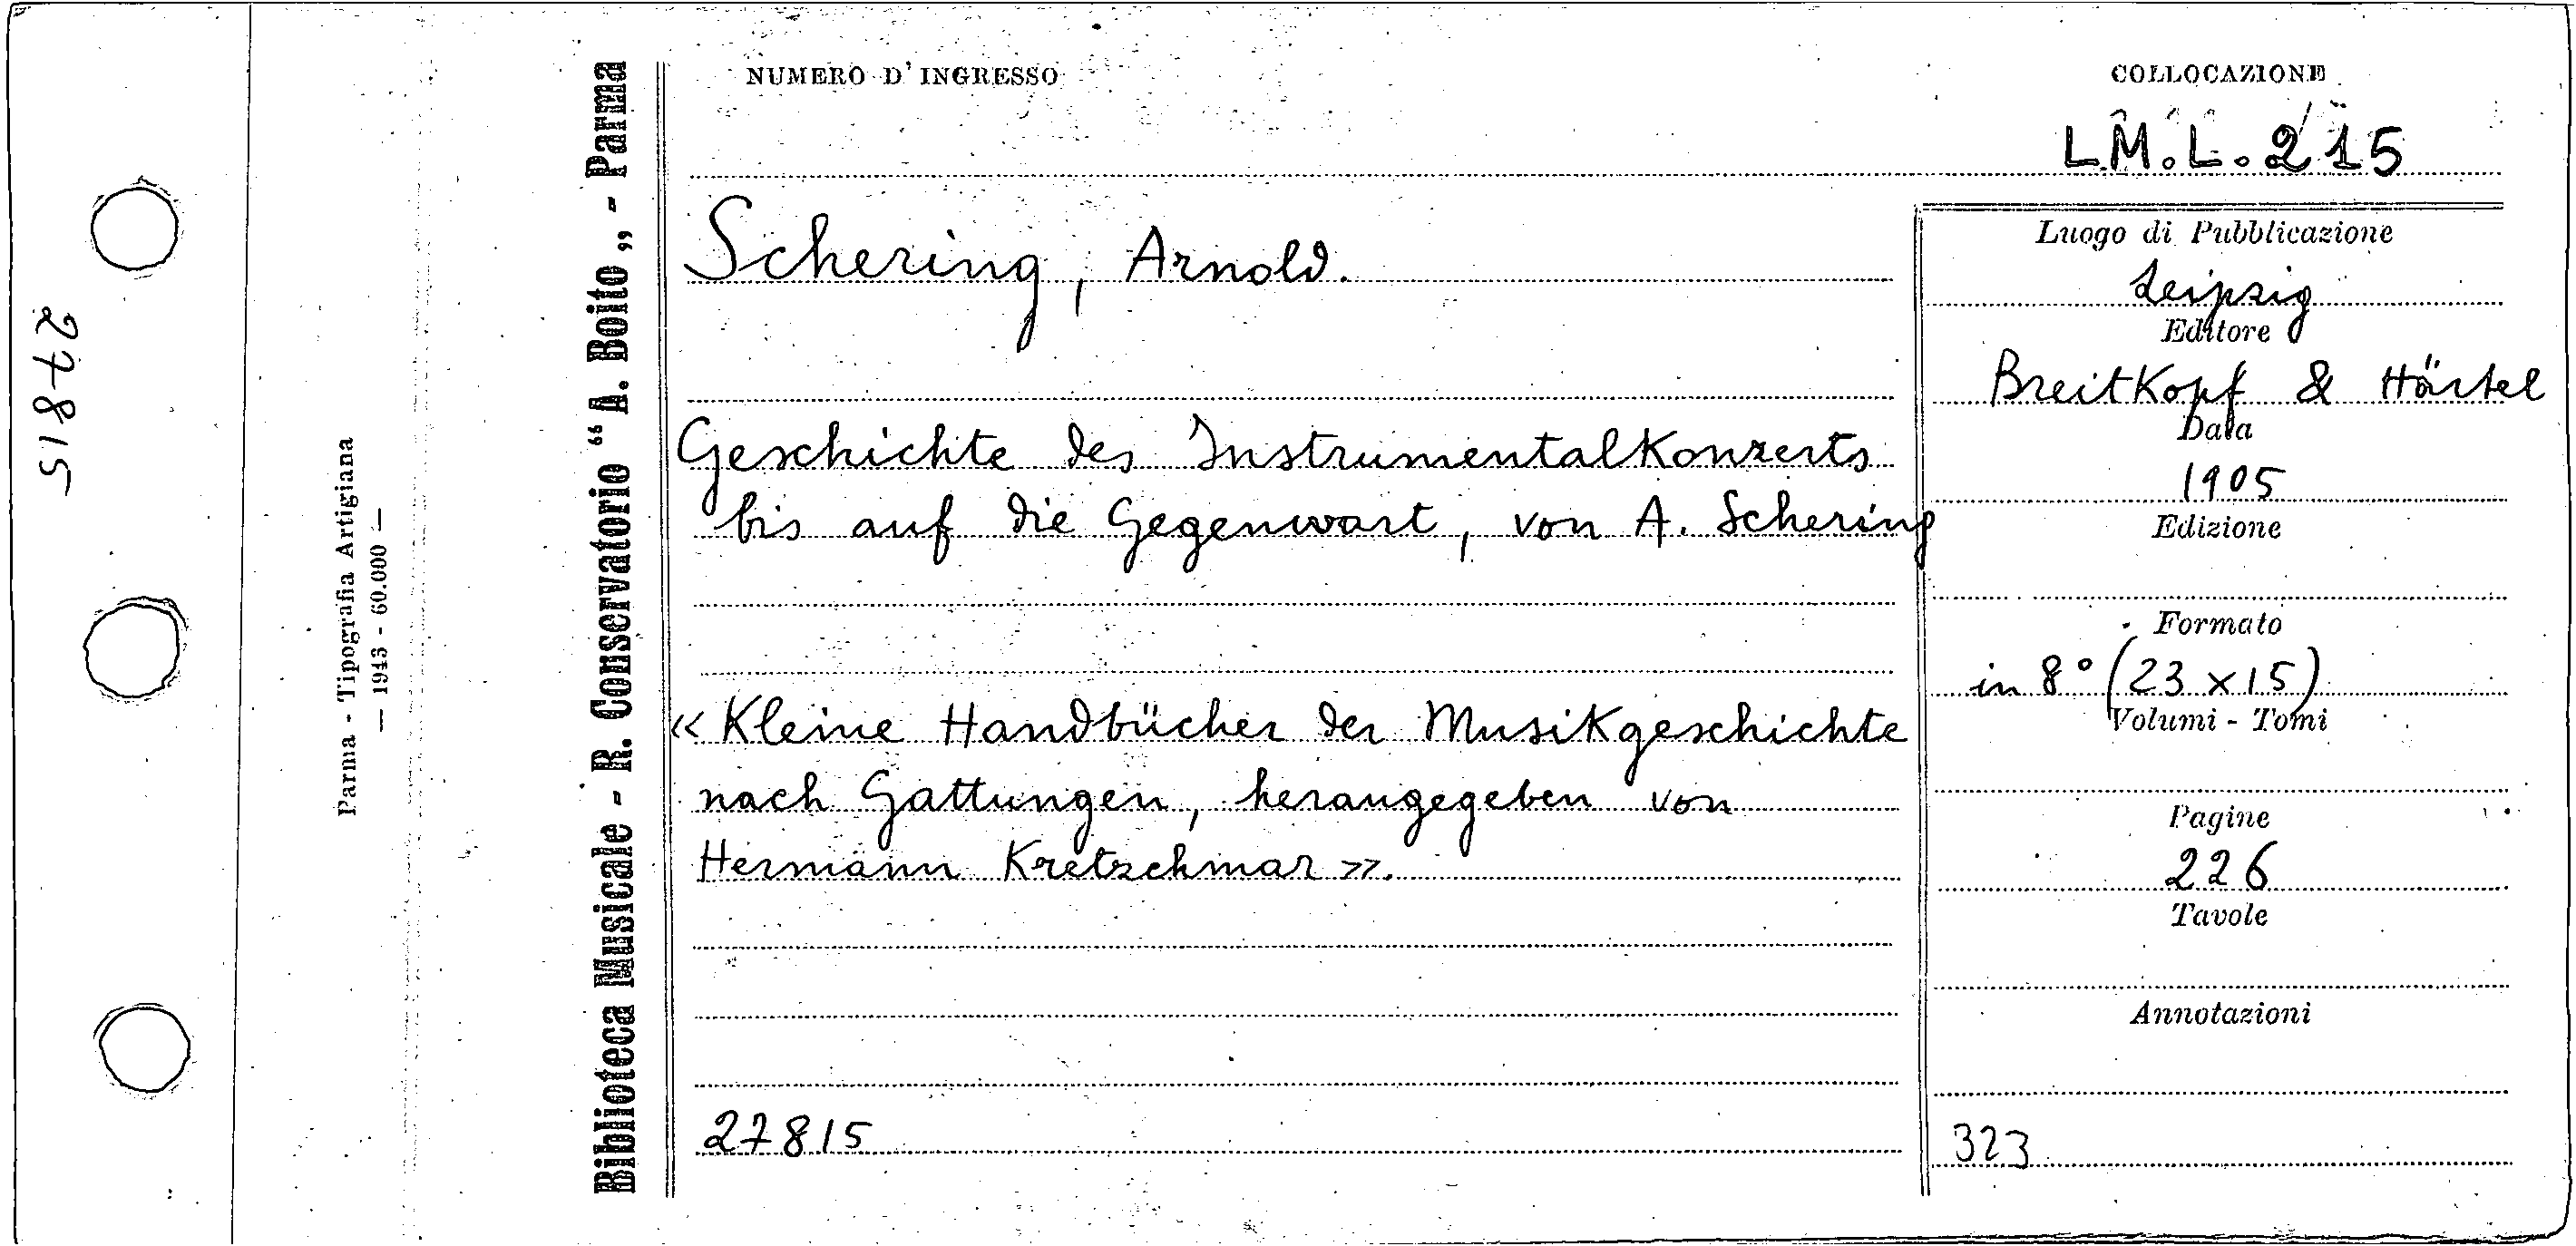 27815
Parma - Tipografia Artigiana
— 1943 - 60.000 —
Biblioteca Musicale - R. Conservatorio “A. Boito„ - Parma
NUMERO D'INGRESSO
COLLOCAZIONE
L.M.L. 215
Schering, Arnold.
Geschichte des Instrumentalkonzerts
bis auf die Gegenwart, von A. Schering
«Kleine Handbücher der Musikgeschichte
nach Gattungen, heraugegeben von
Hermann Kretzschmar».
27815
Luogo di Pubblicazione
Leipzig
Editore
Breitkopf & Härtel
Data
1905
Edizione
Formato
in 8° (23 x 15)
Volumi - Tomi
Pagine
226
Tavole
Annotazioni
323